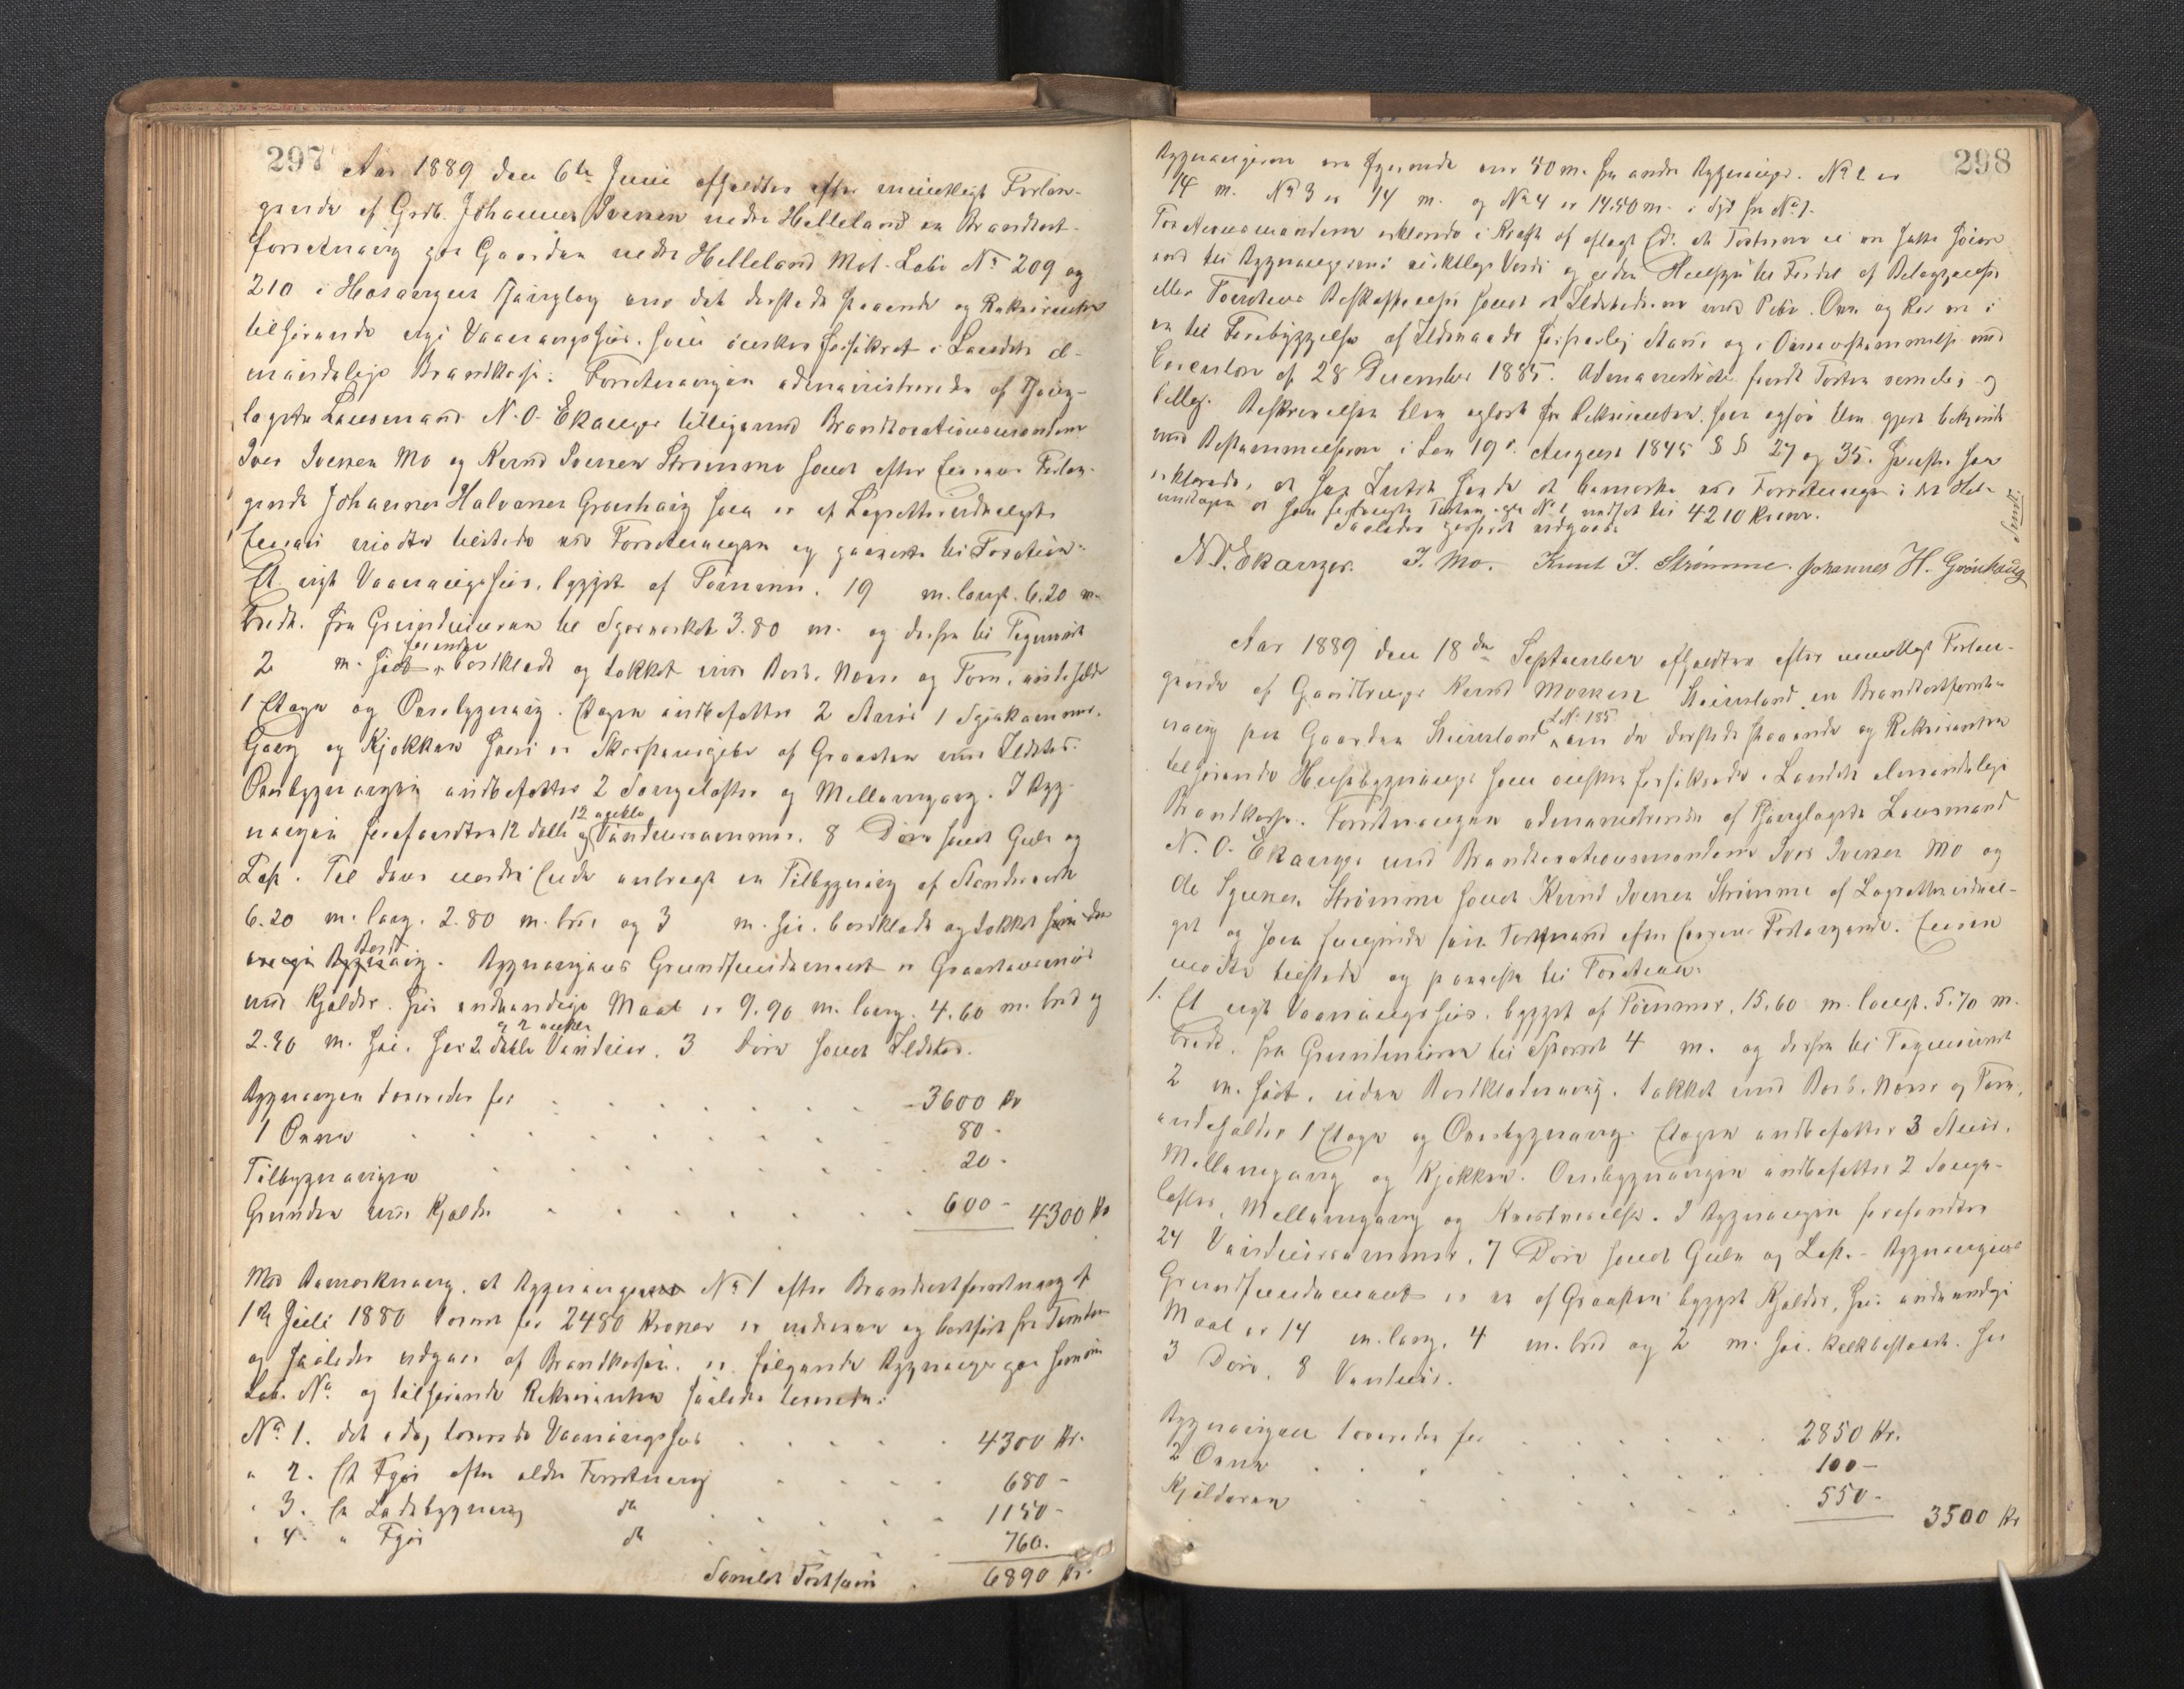 297
Aar 1889 den 6te Juni afholdtes efter mundtligt Forlan-
gende af Grdb. Johannes Iversen nedre Helleland en Brandtaxt-
forretning paa Gaarden nedre Helleland Mat. Løbe No 209 og
210 i Hosanger Thinglag over det dersteds staaende og Rekvirenten
tilhørende nye Vaaningshus, som ønskes forsikret i Landets al-
mindelige Brandkasse. Forretningen administreredes af Thing-
lagets Lensmand N. O. Ekanger tilligemed Brandtaxationsmændene
Iver Iversen Mo og Knud Iversen Strømme samt efter Forlan-
gende Johannes Halvorsen Grønhaug som er af Lagrettesudvalget.
mødte tilstede ved Forretningen og paaviste til Taxation:
Et nyt Vaaningshus, bygget af Tømmer, 19 m. langt, 6.20 m.
bredt, fra Grundmuren til 3.80 m. og derfra til Tagmønet
2 m. høit, bordklædt og tækket med Bord, Næver og Torv, indeholder
1 Etage og Overbygning. Etagen indbefatter 2 Stuer 1 Spisekammer,
Gang og Kjøkken hvori er Skorstenspibe af Graasten med Ildsted.
Overbygningen indbefatter 2 Sængelofter og Mellemgang. I Byg-
ningen forefindtes 12 dobbelte og 12 enkelte Vinduesrammer, 8 Døre samt Gulv og
Loft. Til dens nordre Ende anbragt en Tilbygning af Stenderværk
6.20 m. lang, 2.80 m. bred og 3 m. høi, bordklædt og tækket
. Bygningens Grundfundament er Graastensmur
med Kjelder, hvis indvendige Maal er 9.90 m. lang, 4.60 m. bred og
2.30 m. høi, har 2 dobbelte og 2 enkelte Vinduer, 3 Døre samt Ildsted.
Bygningen taxeredes for 3600 Kr
1 Ovn 80 -
Tilbygningen 20 -
Grunden med Kjelder 600 - 4300 Kr
Med Bemærkning, at Bygningen No 1 efter Brandtaxtforretning af
1de Juli 1880 taxeret for 2480 Kroner er nedreven og bortført fra Tomten
og saaledes udgaar af Brandkassen, er følgende Bygninger paa samme
Løb. No og tilhørende Rekvirenten saaledes taxerede:
No 1. det i dag taxerede Vaaningshus 4300 Kr.
" 2. Et Fjøs efter ældre Forretning 680 -
" 3. En Ladebygning do 1150 -
" 4. " Fjøs do 760.
Samlet Taxtsum 6890 Kr.
298
Bygningerne ere liggende over 30 m. fra andre Bygninger. No 2 er
14 m. No 3 er 14 m. og No 4 er 14.50 m. i Syd fra No 1.
Taxationsmændene erklærede i Kraft af aflagt Ed, at Taxterne ei ere satte høiere
end til Bygningernes virkelige Værdi og uden Hensyn til Fordel af Beliggenhed
eller Tomtens Beskaffenhed samt at Ildstederne med Piber, Ovn og Rør ere i
en til Forebyggelse af Ildsvaade forsvarlig Stand og i Overensstemmelse med
Circulære af 28 December 1885. Administrator fandt Taxten rimelig og
billig. Beskrivelsen blev oplæst for Rekvirenten, som ogsaa blev gjort bekjendt
med Bestemmelserne i Lov 19de August 1845 §§ 27 og 35, hvorefter han
erklærede, at han Intet havde at bemærke ved Forretningen i det Hele
undtagen at han forlangte Taxten paa No 1 nedsat til 4210 Kroner.
Saaledes passeret udgaar
N. O. Ekanger. I. Mo. Knut I. Strømme. Johannes H. Grønhaug
Aar 1889 den 18de September afholdtes efter mundtligt Forlan-
gende af Gaardbruger Knud Monsen Steinsland en Brandtaxtforret-
ning paa Gaarden Steinsland L.No 185 over de dersteds staaende og Rekvirenten
tilhørende Husebygninger som ønskes forsikrede i Landets almindelige
Brandkasse. Forretningen administreredes af Thinglagets Lensmand
N. O. Ekanger med Brandtaxationsmændene Iver Iversen Mo og
Ole Strømme samt Knud Iversen Strømme af Lagrettesudval-
get og som fungerede som Taxtmand efter Forlangende.
mødte tilstede og paaviste til Taxation:
1. Et nyt Vaaningshus, bygget af Tømmer, 15.60 m. langt, 5.70 m.
bredt, fra Grundmuren til Sparret 4 m. og derfra til Tagmønet
2 m. høit, uden Bordklædning, tækket med Bord, Næver og Torv,
indeholder 1 Etage og Overbygning. Etagen indbefatter 3 Stuer,
Mellemgang og Kjøkken. Overbygningen indbefatter 2 Sænge-
lofter, Mellemgang og Kvistværelse. I Bygningen forefindtes
24 Vinduesrammer, 7 Døre samt Gulv og Loft. - Bygningens
Grundfundament er en af Graasten bygget Kjelder, hvis indvendige
Maal er 14 m. lang, 4 m. bred og 2 m. høi, kalkbestænkt, har
3 Døre, 8 Vinduer.
Bygningen taxeredes for 2850 Kr.
2 Ovne 100 -
Kjelderen 550 -
3500 Kr